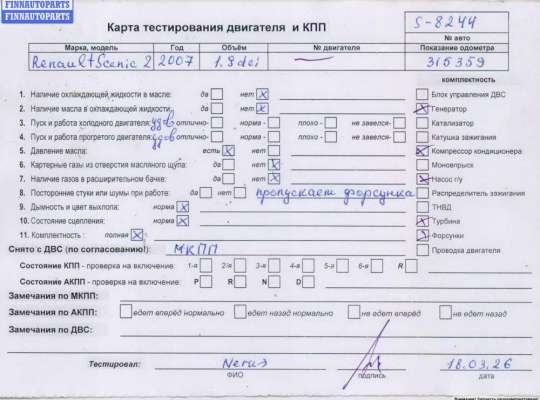 FINNAUTOPARTS
FINNAUTOPARTS
Карта тестирования двигателя и КПП
S-8244
№ авто
Марка, модель Год Объём № двигателя Показание одометра
Renault Scenic 2 2007 1.9dci 315359
комплектность
1. Наличие охлаждающей жидкости в масле: да нет x Блок управления ДВС
2. Наличие масла в охлаждающей жидкости: да нет x x Генератор
3. Пуск и работа холодного двигателя: удов отлично- норма - плохо - не завелся- Катализатор
4. Пуск и работа прогретого двигателя: удов отлично- норма - плохо - не завелся- Катушка зажигания
5. Давление масла: есть x нет x Компрессор кондиционера
6. Картерные газы из отверстия масляного щупа: да нет x Моновпрыск
7. Наличие газов в расширительном бачке: да нет x x Насос г/у
8. Посторонние стуки или шумы при работе: да нет пропускает форсунка Распределитель зажигания
9. Дымность и цвет выхлопа: норма x ТНВД
10. Состояние сцепления: норма x x Турбина
11. Комплектность : полная x x Форсунки
Снято с ДВС (по согласованию!): МКПП Проводка двигателя
Состояние КПП - проверка на включение: 1-я 2-я 3-я 4-я 5-я 6-я R
Состояние АКПП - проверка на включение: P R N D
Замечания по МКПП:
Замечания по АКПП: едет вперёд нормально едет назад нормально не едет вперёд не едет назад
Замечания по ДВС:
Тестировал: 18.03.26
ФИО подпись дата